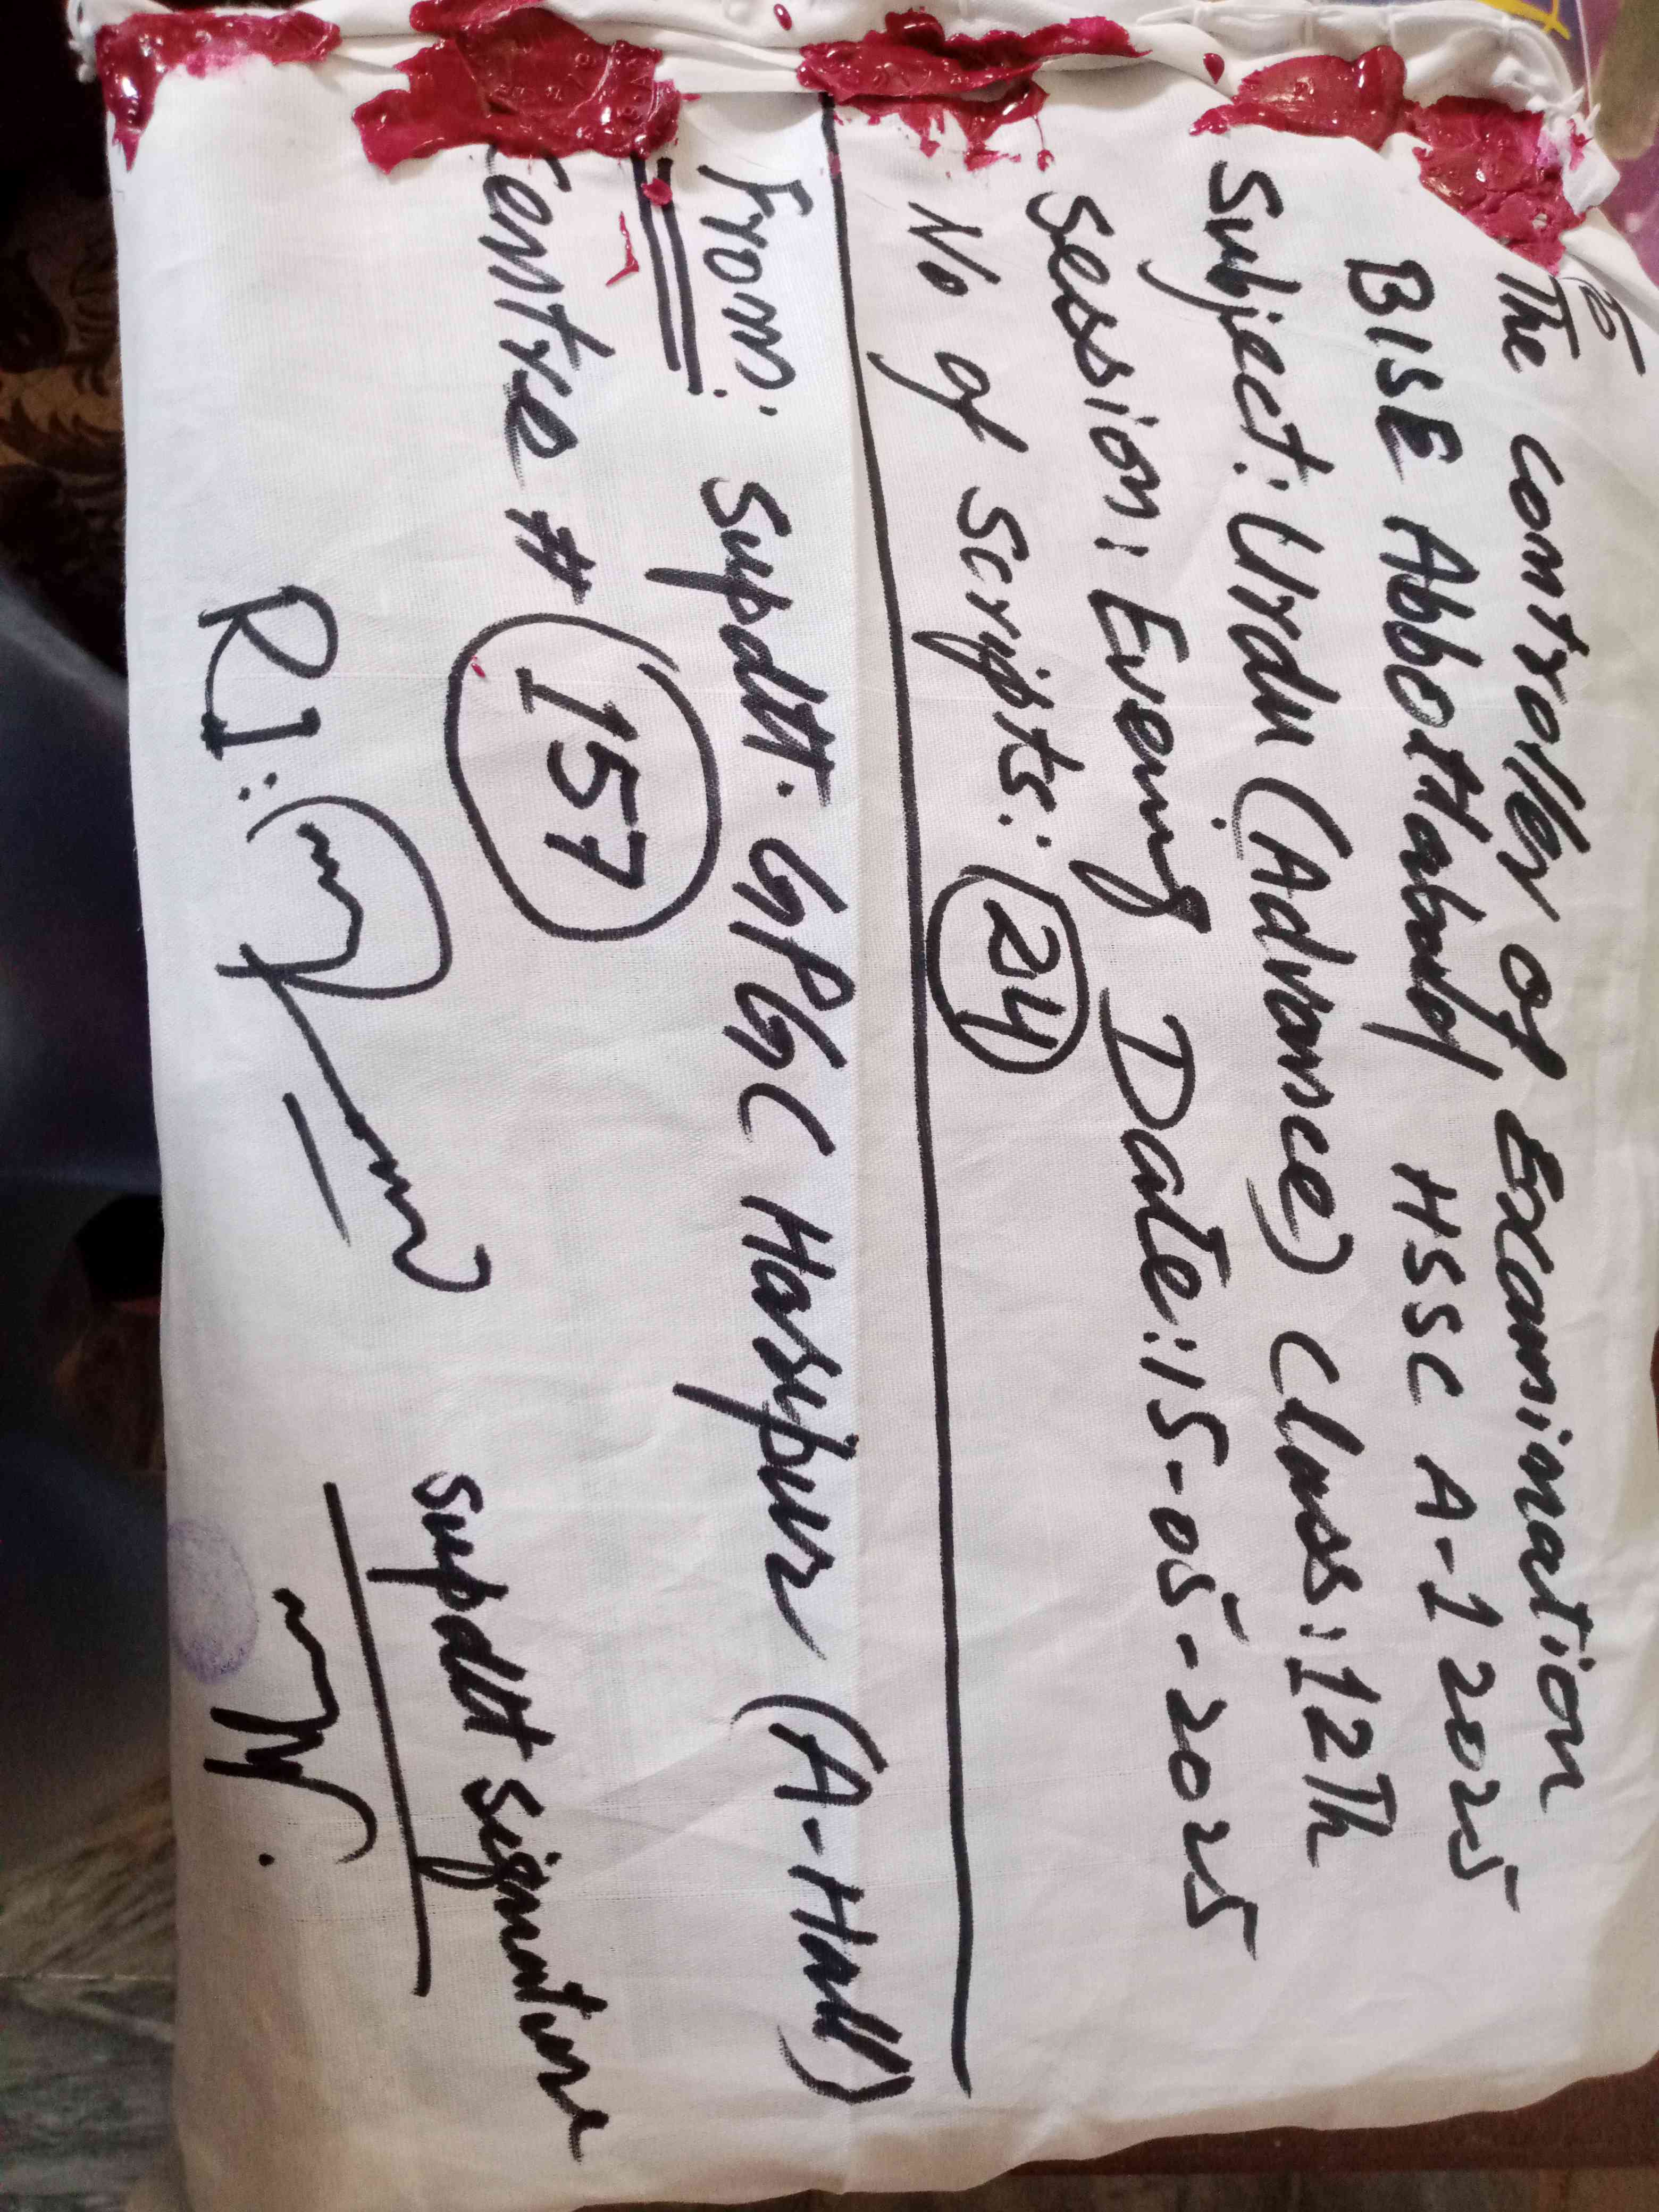 To
The controller of Examination
BISE Abbottabad HSSC A-1 2025
Subject: Urdu (Advance) Class: 12Th
Session: Eveing Date: 15-05-2025
No of Scripts: 24
From: Supdtt. GPGC Haripur (A-Hall)
Centre # 157
RI:
Supdtt signature